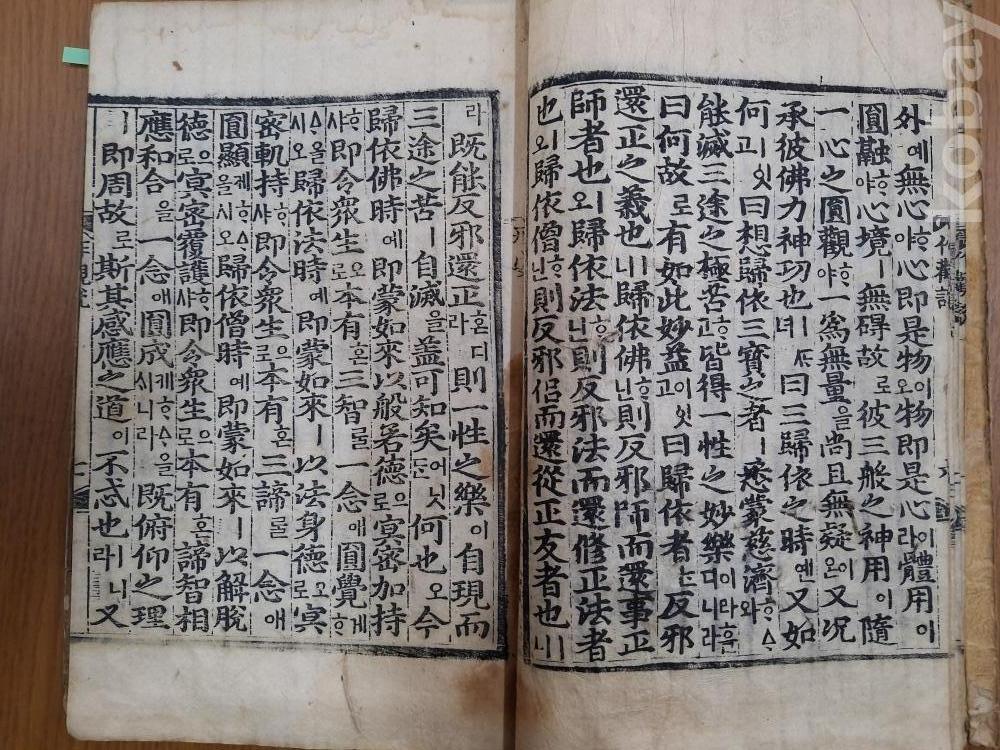 外예無心야心即是物와物即是心이라體用이
圓融ᄒᆞ야心境ㅣ無碍故로彼三般之神用이隨
一心之圓觀ᄒᆞ야一爲無量을尚且無疑온이又况
承彼佛力神功也녀曰三歸依之時옌又如
何고잇曰想歸依三寶之者ㅣ悉蒙慈濟와ᄒᆞᅀᆞ
能滅三途之極苦고皆得一性之妙樂이라ᄒᆞᆫ디니라
曰何故로有如此妙益고이잇曰歸依者反邪
還正之義也ㅣ니歸依佛ᄒᆞ닌則反邪師而還事正
師者也ㅣ오歸依法ᄒᆞ닌則反邪法而還修正法者
也ㅣ오歸依僧ᄒᆞ닌則反邪侶而還從正友者也ㅣ니
라既能反邪還正혼디라則一性之樂이自現而
三途之苦ㅣ自滅을蓋可知矣어닛何也오今
歸依佛時에即蒙如來以般若德으로冥密加持
ᄒᆞ샤即令衆生으로本有혼三智ᄅᆞᆯ一念애圓覺ᄒᆞ게
ᄒᆞᅀᆞ올시오歸依法時예即蒙如來ㅣ以法身德오로冥
密軌持ᄒᆞ샤即令衆生으로本有혼三諦ᄅᆞᆯ一念애
圓顯ᄒᆞ제을시오歸依僧時예即蒙如來ㅣ以解脫
德으로冥密覆護ᄒᆞ샤即令衆生으로本有혼諦智相
應和合을一念애圓成케ᄒᆞᅀᆞ을시니라既俯仰之理
ㅣ即周故로斯其感應之道이不忒也ㅣ니라又
Kobay